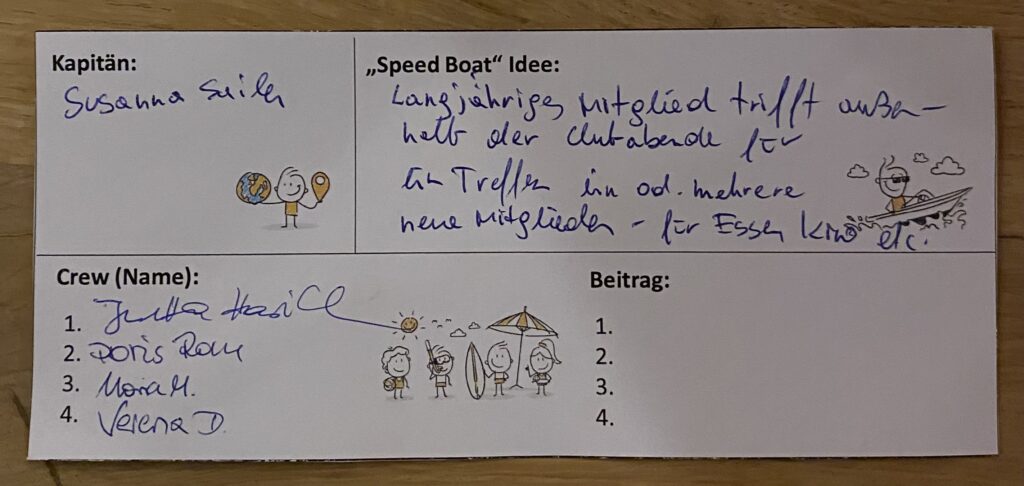 Kapitän:
Susanna
„Speed Boat“ Idee:
Langjähriges Mitglied trifft außer-
halb der Clubabende für
Ein Treffen ein od. mehrere
neue Mitglieder - für Essen Kino etc.
Crew (Name):
1. Jutta
2. Doris
3. Maria M.
4. Verena D.
Beitrag:
1.
2.
3.
4.